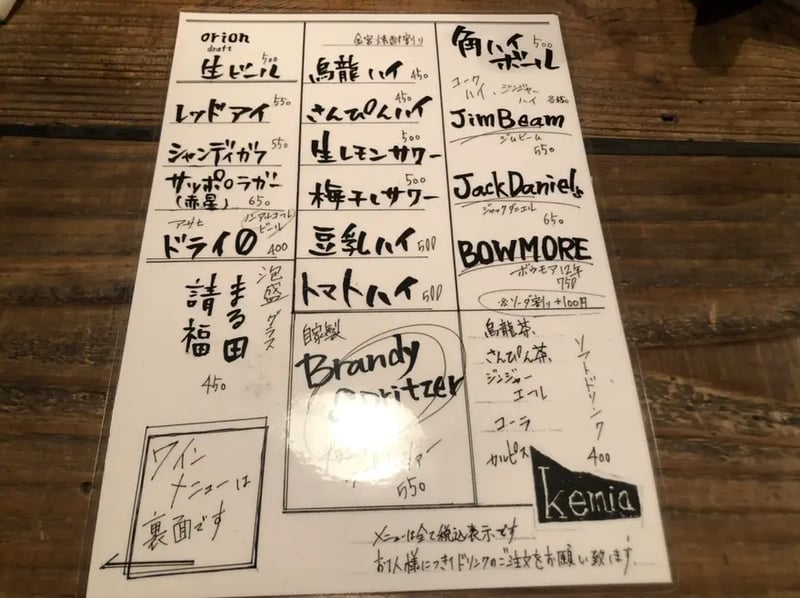 orion
draft
生ビール 500
レッドアイ 550
シャンディガフ 550
サッポロラガー
(赤星) 650
アサヒ
ノンアルコール
ビール
ドライ0 400
泡盛 グラス
まる田
請福
450
ワイン
メニューは
裏面です
焼酎割り
烏龍ハイ 450
さんぴんハイ 450
生レモンサワー 500
梅干しサワー 500
豆乳ハイ 500
トマトハイ 500
自家製
Brandy
Spritzer
550
角ハイ
ボール 500
コーク
ハイ、ジンジャー
ハイ 各550
JimBeam
ジムビーム
550
Jack Daniels
ジャックダニエル
650
BOWMORE
ボウモア12年
750
※ソーダ割り+100円
ソフトドリンク
烏龍茶、
さんぴん茶、
ジンジャー
エール
コーラ
カルピス 400
kemia
メニューは全て税込表示です
お1人様につき1ドリンクのご注文をお願い致します.